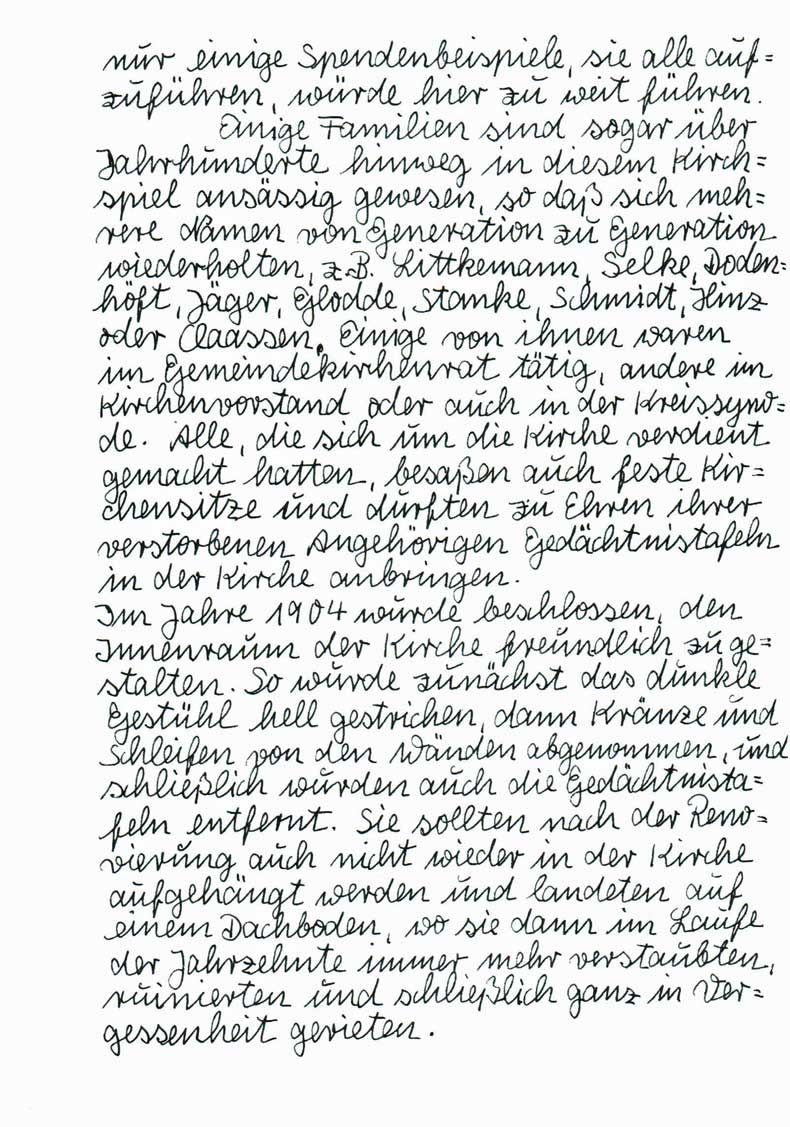 nur einige Spendenbeispiele, sie alle auf=
zuführen, würde hier zu weit führen.
Einige Familien sind sogar über
Jahrhunderte hinweg in diesem Kirch=
spiel ansässig gewesen, so daß sich meh=
rere Namen von Generation zu Generation
wiederholten, z.B. Littkemann, Selke, Doden=
höft, Jäger, Glodde, Stamke, Schmidt, Hinz
oder Claassen. Einige von ihnen waren
im Gemeindekirchenrat tätig, andere im
Kirchenvorstand oder auch in der Kreissyno=
de. Alle, die sich um die Kirche verdient
gemacht hatten, besaßen auch feste Kir=
chensitze und durften zu Ehren ihrer
verstorbenen Angehörigen Gedächtnistafeln
in der Kirche anbringen.
Im Jahre 1904 wurde beschlossen, den
Innenraum der Kirche freundlich zu ge=
stalten. So wurde zunächst das dunkle
Gestühl hell gestrichen, dann Kränze und
Schleifen von den Wänden abgenommen, und
schließlich wurden auch die Gedächtnista=
feln entfernt. Sie sollten nach der Reno=
vierung auch nicht wieder in der Kirche
aufgehängt werden und landeten auf
einem Dachboden, wo sie dann im Laufe
der Jahrzehnte immer mehr verstaubten,
ruinierten und schließlich ganz in Ver=
gessenheit gerieten.